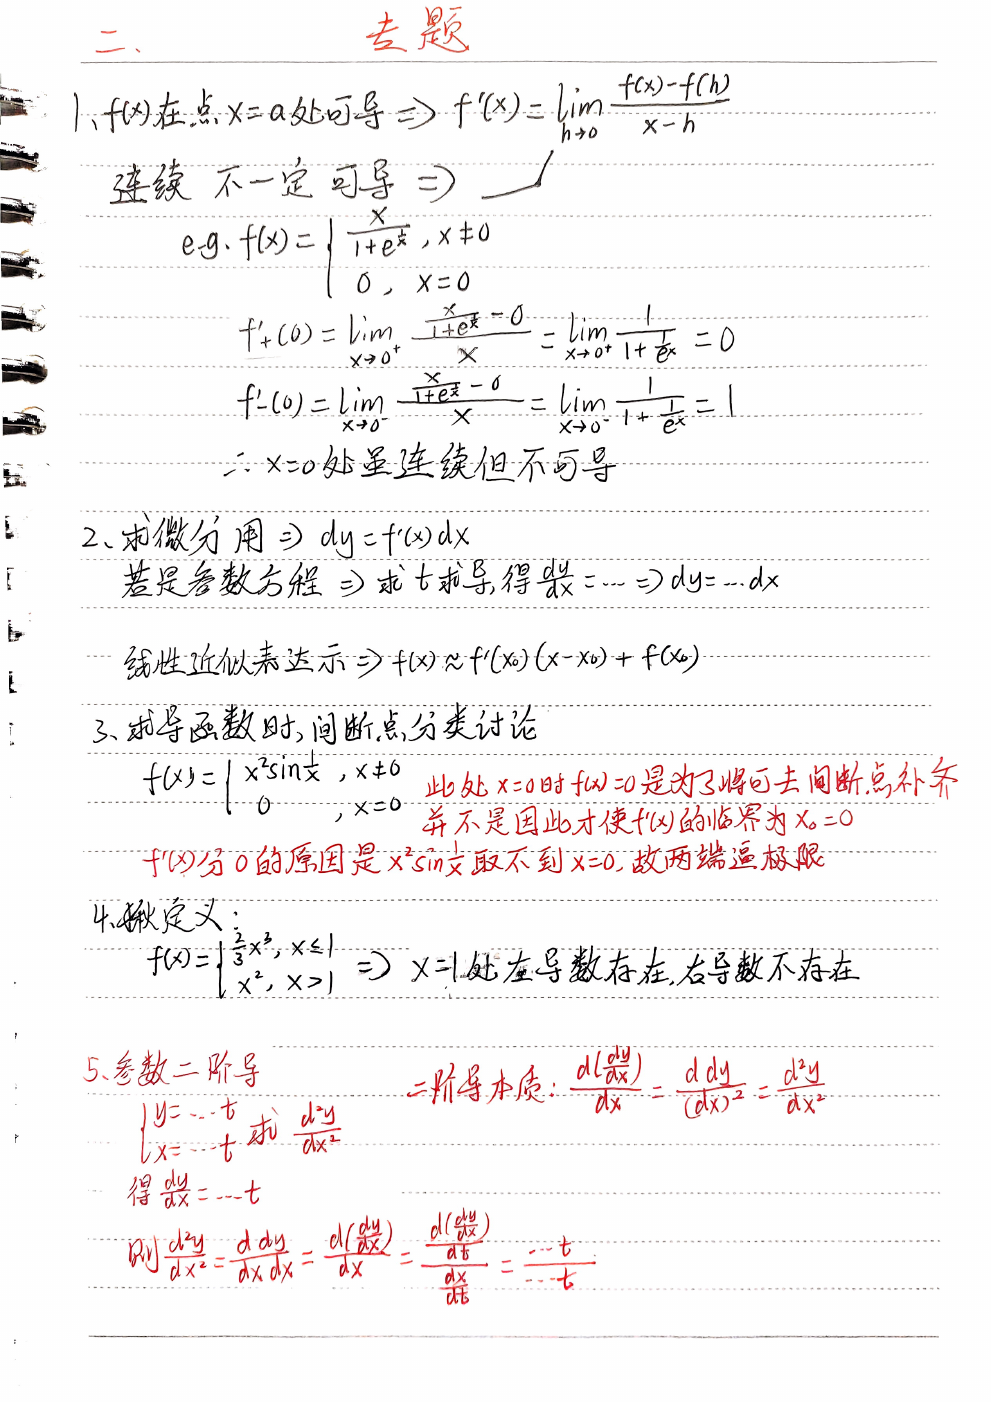 二、 专题
1、f(x)在点x=a处可导 ⇒ f'(x)=lim_{h→0} \frac{f(x)-f(h)}{x-h}
连续 不一定 可导 ⇒
e.g. f(x)={ \frac{x}{1+e^{\frac{1}{x}}}, x≠0
0, x=0
f'₊(0)=lim_{x→0⁺} \frac{\frac{x}{1+e^{\frac{1}{x}}}-0}{x} = lim_{x→0⁺} \frac{1}{1+\frac{1}{e^x}} = 0
f'₋(0)=lim_{x→0⁻} \frac{\frac{x}{1+e^{\frac{1}{x}}}-0}{x} = lim_{x→0⁻} \frac{1}{1+\frac{1}{e^x}} = 1
∴ x=0处虽连续但不可导
2、求微分用 ⇒ dy=f'(x)dx
若是参数方程 ⇒ 求t求导,得\frac{dy}{dx}=… ⇒ dy=…dx
线性近似表达示 ⇒ f(x)≈f'(x₀)(x-x₀)+f(x₀)
3、求导函数时,间断点分类讨论
f(x)={ x²sin\frac{1}{x}, x≠0
0, x=0
此处x=0时f(x)=0是为了将可去间断点补齐
并不是因此才使f'(x)的临界为x₀=0
f'(x)分0的原因是x²sin\frac{1}{x}取不到x=0,故两端逼极限
4、揪定义:
f(x)={ \frac{2}{3}x³, x≤1
x², x>1 ⇒ x=1处左导数存在,右导数不存在
5、参数二阶导
二阶导本质: \frac{d(\frac{dy}{dx})}{dx} = \frac{d dy}{(dx)²} = \frac{d²y}{dx²}
{ y=…t
x=…t 求 \frac{d²y}{dx²}
得\frac{dy}{dx}=…t
则\frac{d²y}{dx²}=\frac{d dy}{dx dx}=\frac{d(\frac{dy}{dx})}{dx}=\frac{\frac{d(\frac{dy}{dx})}{dt}}{\frac{dx}{dt}}=\frac{…t}{…t}